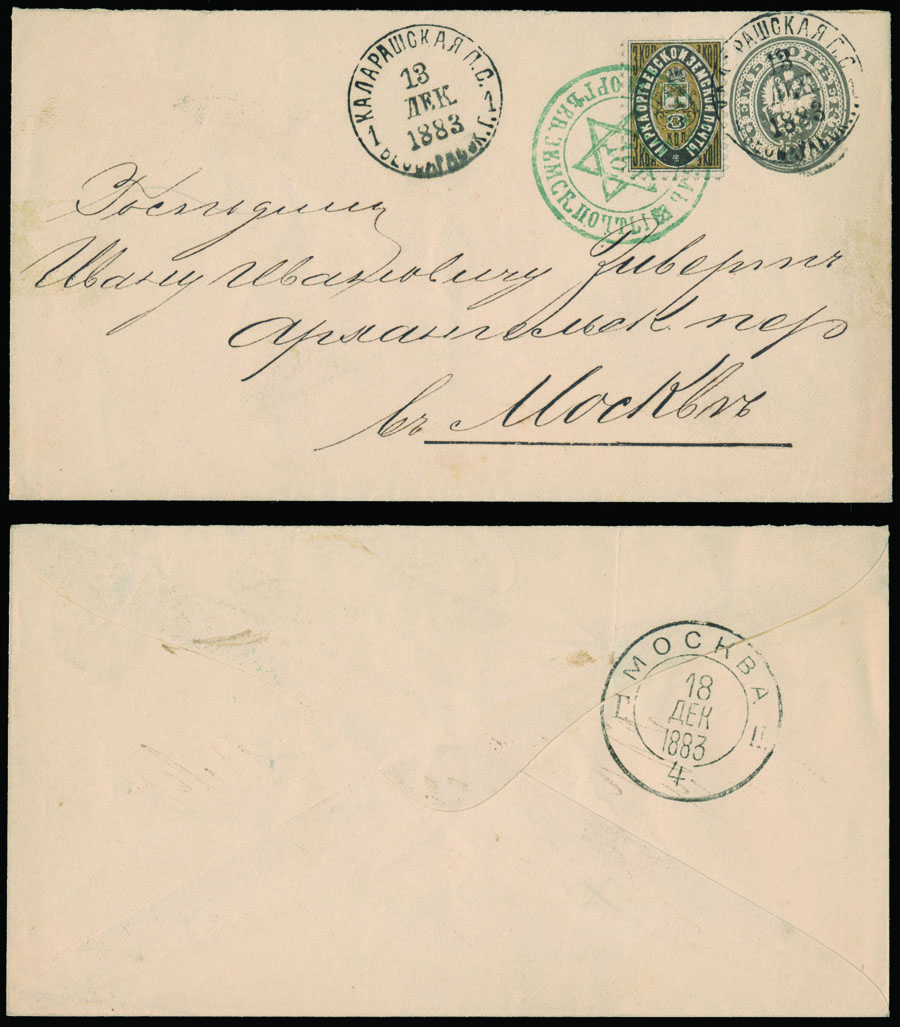 КАЛАРАШСКАЯ П.С.
13
ДЕК
1883
1 БЕССАРАБСК.Г. 1
ОРГѢЕВ.ЗЕМСК.ПОЧТЫ
3 КОП. 3 КОП.
МАРКА ОРГѢЕВСКОЙ ЗЕМСКОЙ ПОЧТЫ
3
КОП
3 КОП. 3 КОП.
РАШСКАЯ П.С.
13
ДЕК
1883
Господину
Ивану Ивановичу Зиверть
Архангельск. пер
въ Москвѣ
МОСКВА
18
ДЕК
1883
4